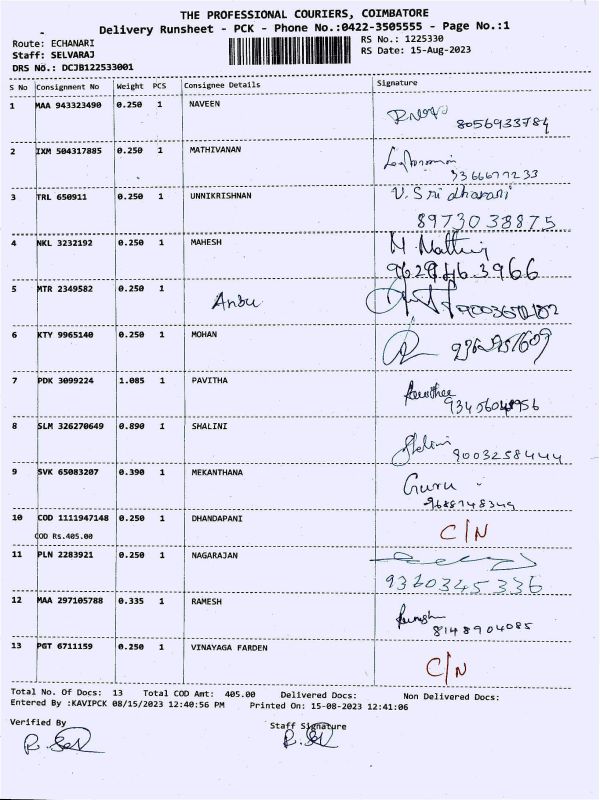 THE PROFESSIONAL COURIERS, COIMBATORE
Delivery Runsheet - PCK - Phone No.:0422-3505555 - Page No.:1
Route: ECHANARI RS No.: 1225330
Staff: SELVARAJ RS Date: 15-Aug-2023
DRS No.: DCJB122533001
S No Consignment No Weight PCS Consignee Details Signature
1 MAA 943323490 0.250 1 NAVEEN
8056933784
2 IXM 504317885 0.250 1 MATHIVANAN
3366677233
3 TRL 650911 0.250 1 UNNIKRISHNAN V. Sri dharani
8973038875
4 NKL 3232192 0.250 1 MAHESH
5 MTR 2349582 0.250 1 Anbu
6 KTY 9965140 0.250 1 MOHAN
7 PDK 3099224 1.085 1 PAVITHA
8 SLM 326270649 0.890 1 SHALINI Shalini
9003258444
9 SVK 65083207 0.390 1 MEKANTHANA Guru
9688748349
10 COD 1111947148 0.250 1 DHANDAPANI C/N
COD Rs.405.00
11 PLN 2283921 0.250 1 NAGARAJAN
9320345336
12 MAA 297105788 0.335 1 RAMESH
8148904085
13 PGT 6711159 0.250 1 VINAYAGA FARDEN C/N
Total No. Of Docs: 13 Total COD Amt: 405.00 Delivered Docs: Non Delivered Docs:
Entered By :KAVIPCK 08/15/2023 12:40:56 PM Printed On: 15-08-2023 12:41:06
Verified By Staff Signature